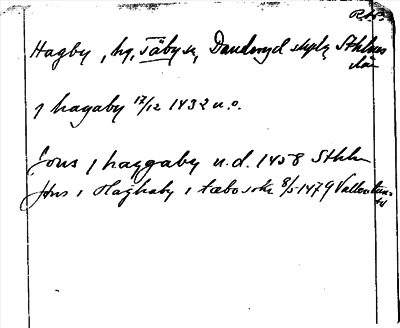 Hagby, hg, Täby sn, Danderyd skplg Sthlms
län
i hagaby 17/12 1432 u.o.
Jons i haggaby u.d. 1458 Sthlm
Jöns i Haghaby i tæbo sokn 8/5 1479 Vallentuna